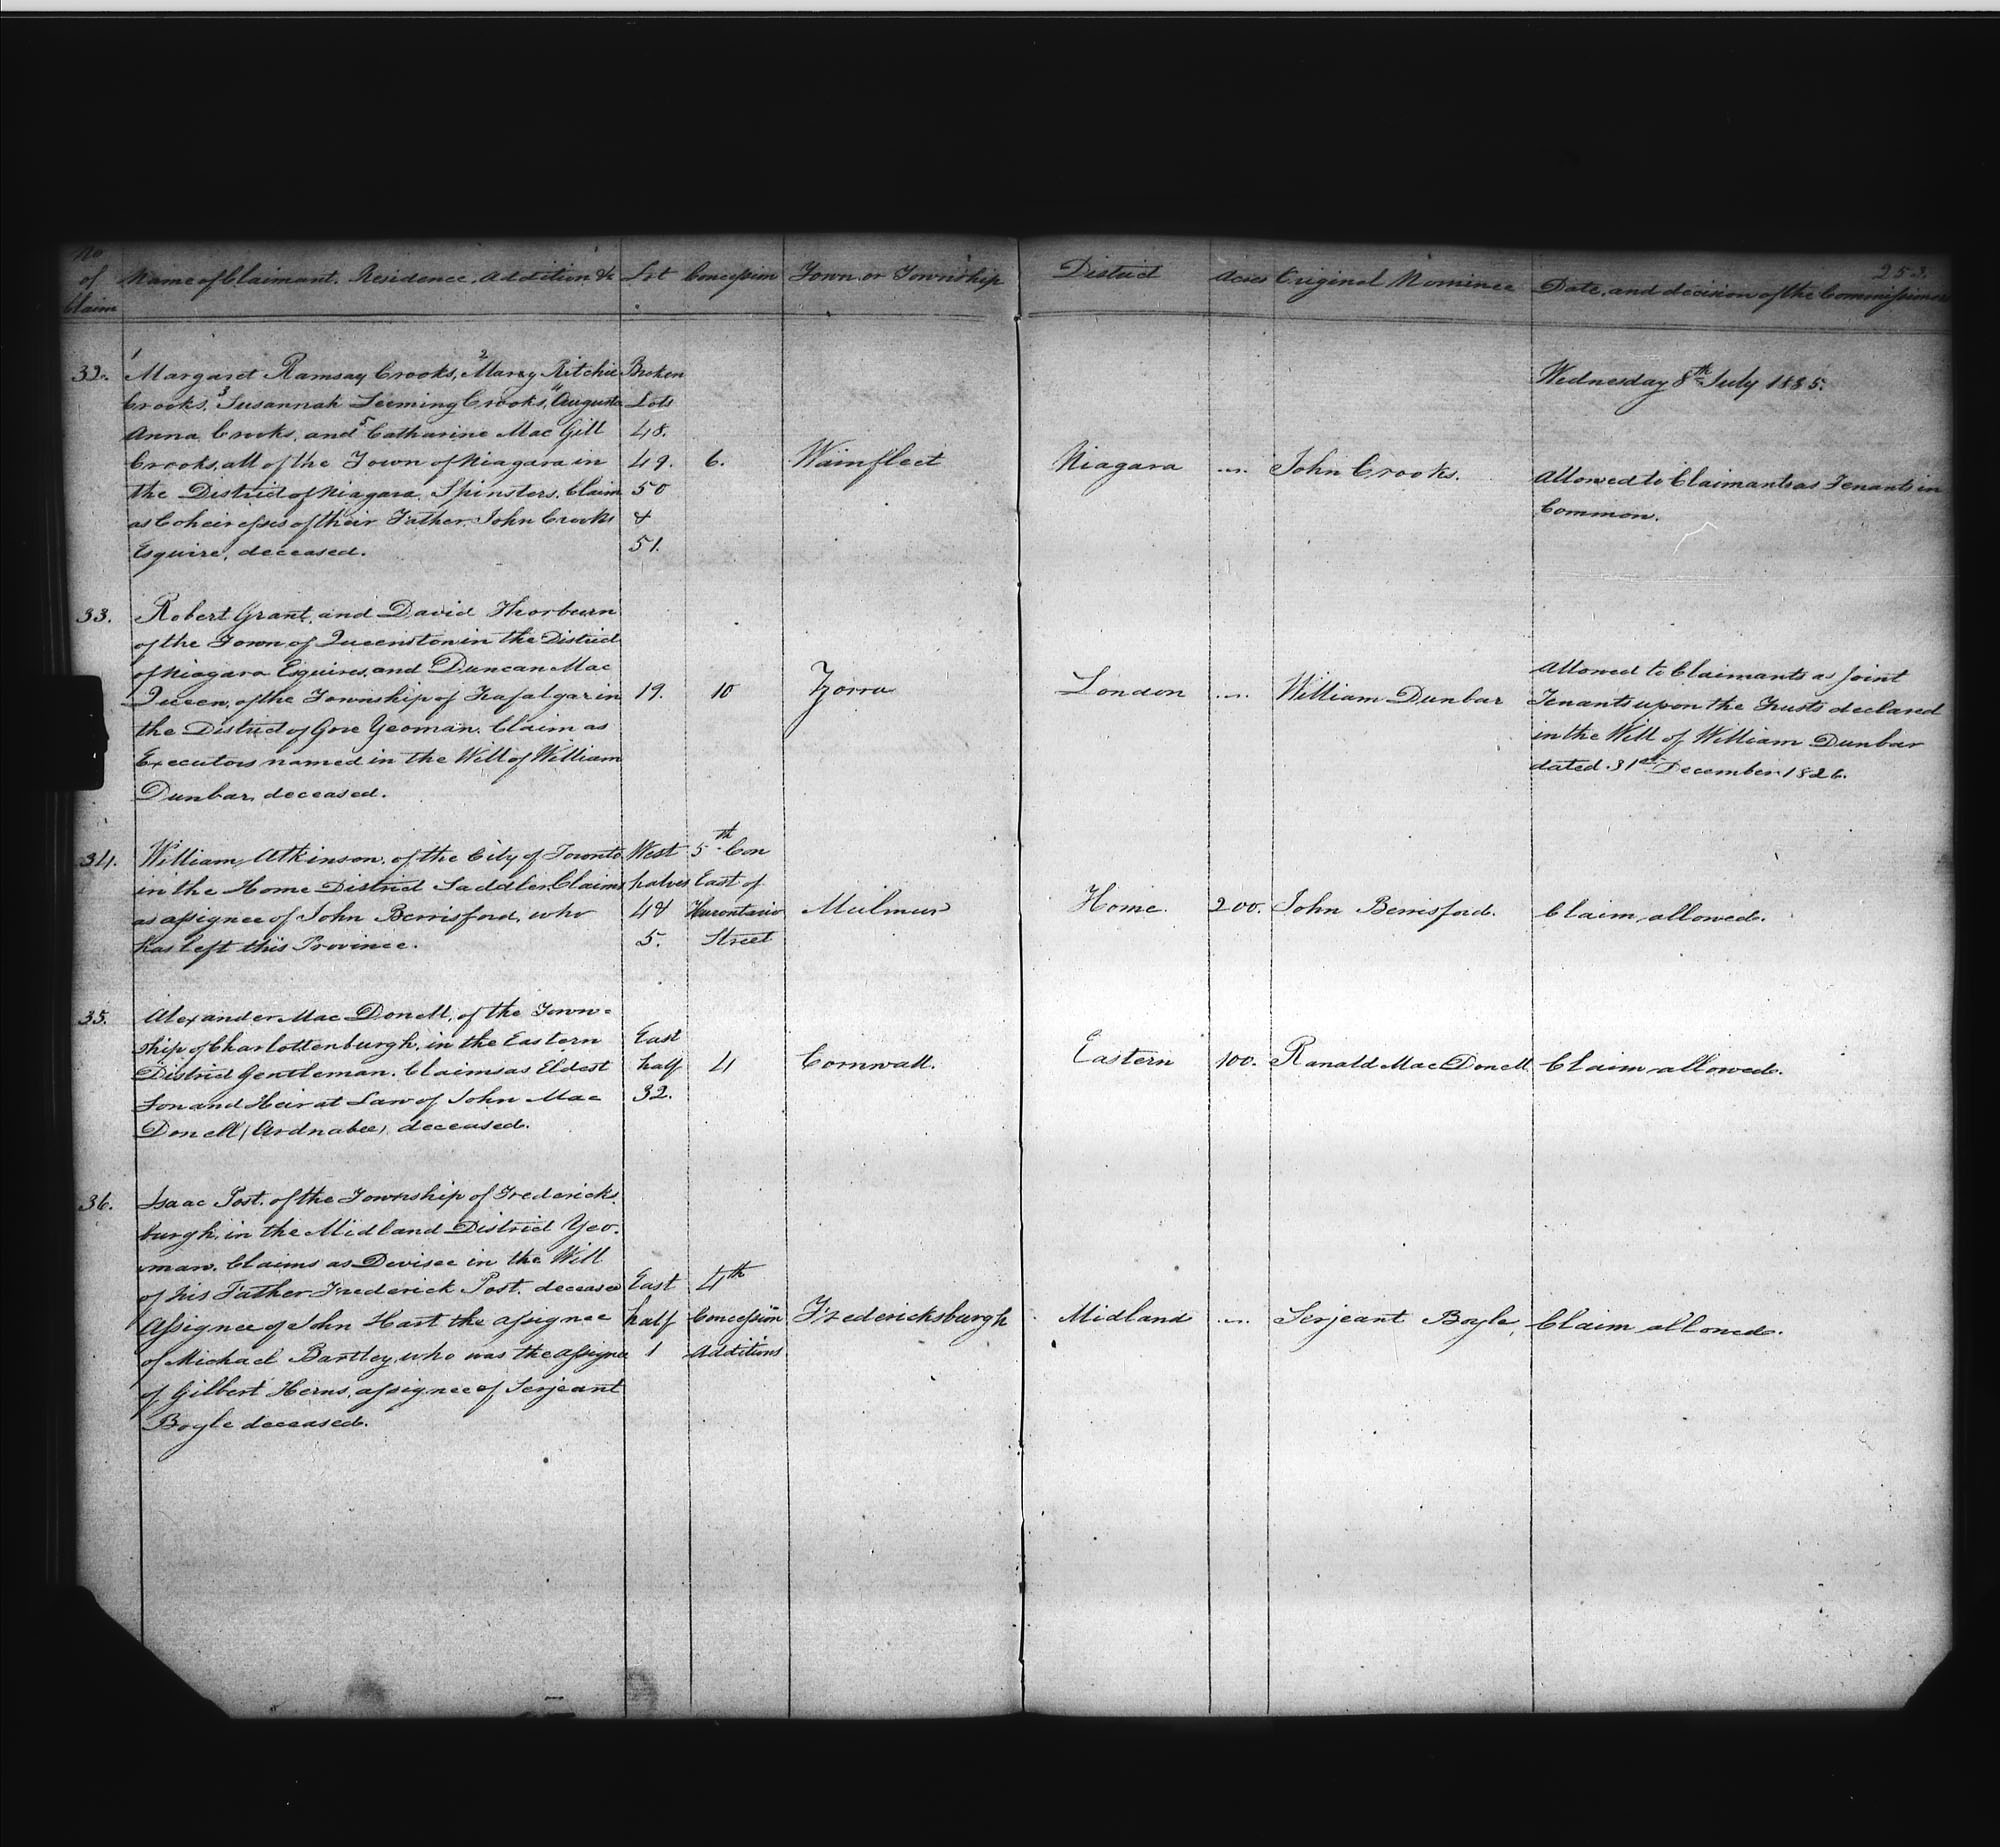 253.
No of Claim | Name of Claimant, Residence, Addition &c | Lot | Concession | Town or Township | District | Acres | Original Nominee | Date, and decision of the Commissioners
Wednesday 8th July 1835.
32. | 1 Margaret Ramsay Crooks, 2 Mary Ritchie | Broken
Crooks, 3 Susannah Leeming Crooks, 4 Augusta | Lots
Anna Crooks, and 5 Catharine Mac Gill | 48.
Crooks, all of the Town of Niagara in | 49. | 6. | Wainfleet | Niagara | .... | John Crooks. | Allowed to Claimants as Tenants in
the District of Niagara, Spinsters, Claim | 50 | Common.
as Coheiresses of their Father John Crooks | &
Esquire, deceased. | 51.
33. | Robert Grant, and David Thorburn
of the Town of Queenston in the District
of Niagara Esquires, and Duncan Mac | Allowed to Claimants as Joint
Queen, of the Township of Trafalgar in | 19. | 10 | Zorra | London | .... | William Dunbar | Tenants upon the Trusts declared
the District of Gore Yeoman. Claim as | in the Will of William Dunbar
Executors named in the Will of William | dated 31st December 1826.
Dunbar, deceased.
34. | William Atkinson, of the City of Toronto | West | 5th Con
in the Home District Saddler. Claims | halves | East of
as assignee of John Berrisford, who | 4 & | Hurontario | Mulmur | Home. | 200. | John Berrisford. | Claim allowed.
has left this Province. | 5. | Street
35. | Alexander Mac Donell, of the Town-
ship of Charlottenburgh, in the Eastern | East
District Gentleman. Claims as Eldest | half | 4 | Cornwall. | Eastern | 100. | Ranald Mac Donell | Claim allowed.
Son and Heir at Law of John Mac | 32.
Donell (Ardnabee) deceased.
36. | Isaac Post, of the Township of Fredericks
burgh, in the Midland District Yeo-
man. Claims as Devisee in the Will
of his Father Frederick Post, deceased | East | 4th
Assignee of John Hart the assignee | half | Concession | Fredericksburgh | Midland | .... | Serjeant Boyle, | Claim allowed.
of Michael Bartley, who was the assignee | 1 | Additions
of Gilbert Herns, assignee of Serjeant
Boyle deceased.